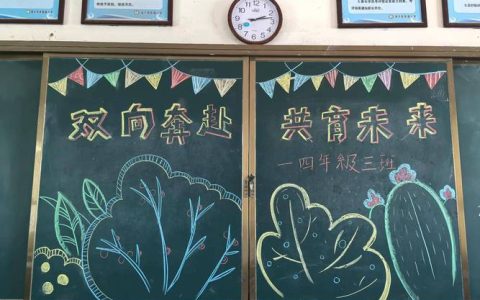 双向奔赴 共育未来
一四年级三班